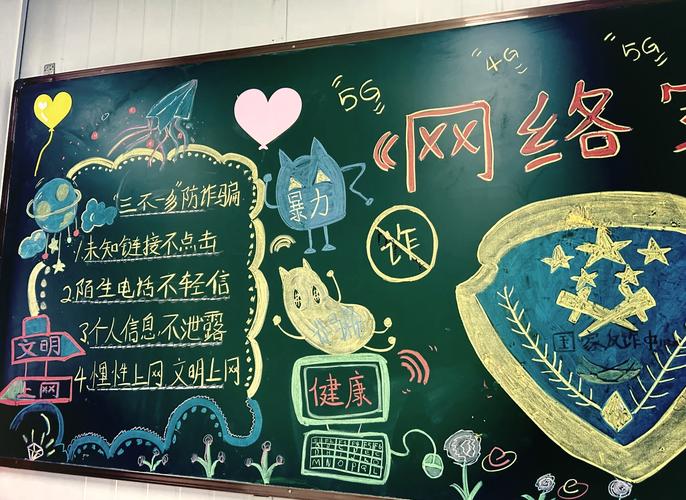 5G
4G
5G
网络
"三不一多"防诈骗
1.未知链接不点击
2.陌生电话不轻信
3.个人信息不泄露
4.性上网 文明上网
文明
上网
暴力
诈
健康
国家反诈中